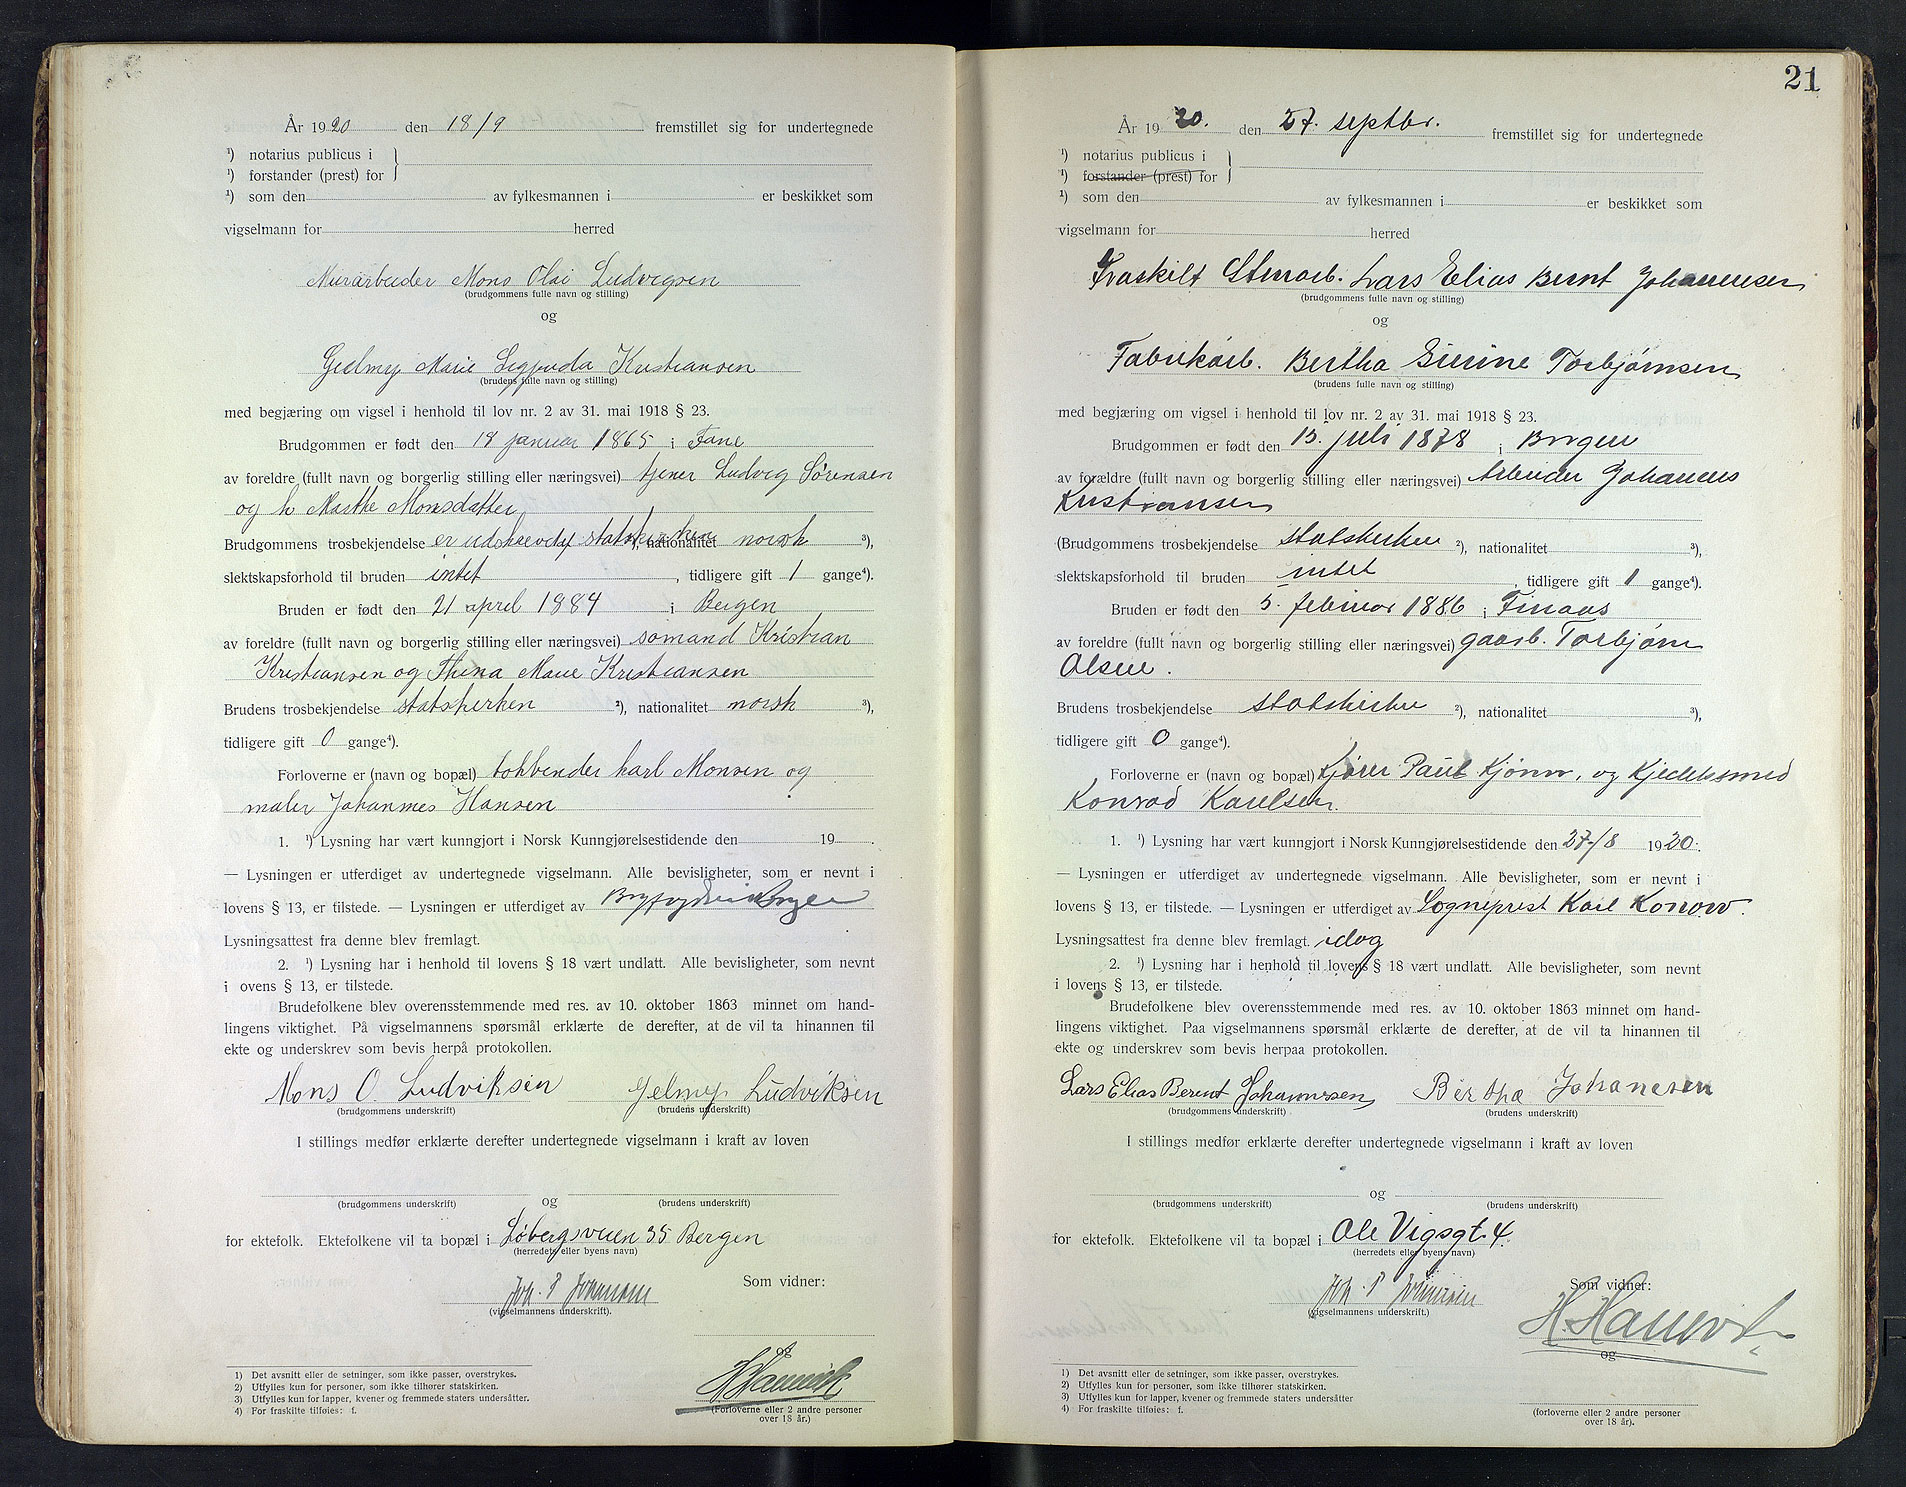 År 1920 den 18/9 fremstillet sig for undertegnede
¹) notarius publicus i
¹) forstander (prest) for
¹) som den av fylkesmannen i er beskikket som
vigselmann for herred
Murarbeider Mons Olai Ludvigsen
(brudgommens fulle navn og stilling)
og
Marie Kristiansen
(brudens fulle navn og stilling)
med begjæring om vigsel i henhold til lov nr. 2 av 31. mai 1918 § 23.
Brudgommen er født den 18 januar 1865 i Fane
av foreldre (fullt navn og borgerlig stilling eller næringsvei) tjener Ludvig Sørensen
og h Marthe Monsdatter
Brudgommens trosbekjendelse er udskrevet af statskirken ²), nationalitet norsk ³),
slektskapsforhold til bruden intet , tidligere gift 1 gange⁴).
Bruden er født den 21 april 1884 i Bergen
av foreldre (fullt navn og borgerlig stilling eller næringsvei) sømand Kristian
Kristiansen og Thina Marie Kristiansen
Brudens trosbekjendelse statskirken ²), nationalitet norsk ³),
tidligere gift 0 gange⁴).
Forloverne er (navn og bopæl) Karl Monsen og
maler Johannes Hansen
1. ¹) Lysning har vært kunngjort i Norsk Kunngjørelsestidende den 19 .
— Lysningen er utferdiget av undertegnede vigselmann. Alle bevisligheter, som er nevnt i
lovens § 13, er tilstede. — Lysningen er utferdiget av
Lysningsattest fra denne blev fremlagt.
2. ¹) Lysning har i henhold til lovens § 18 vært undlatt. Alle bevisligheter, som nevnt
i ovens § 13, er tilstede.
Brudefolkene blev overensstemmende med res. av 10. oktober 1863 minnet om hand-
lingens viktighet. På vigselmannens spørsmål erklærte de derefter, at de vil ta hinannen til
ekte og underskrev som bevis herpå protokollen.
Mons O. Ludviksen Jelmy Ludviksen
(brudgommens underskrift) (brudens underskrift)
I stillings medfør erklærte derefter undertegnede vigselmann i kraft av loven
og
(brudgommens underskrift) (brudens underskrift)
for ektefolk. Ektefolkene vil ta bopæl i Løbergsveien 35 Bergen
(herredets eller byens navn)
Som vidner:
Joh. P Johansen
(vigselmannens underskrift).
og
(Forloverne eller 2 andre personer
over 18 år.)
1) Det avsnitt eller de setninger, som ikke passer, overstrykes.
2) Utfylles kun for personer, som ikke tilhører statskirken.
3) Utfylles kun for lapper, kvener og fremmede staters undersåtter.
4) For fraskilte tilføies: f.
21
År 1920. den 27. septbr. fremstillet sig for undertegnede
¹) notarius publicus i
¹) forstander (prest) for
¹) som den av fylkesmannen i er beskikket som
vigselmann for herred
Fraskilt Stenarb. Lars Elias Bernt Johannesen
(brudgommens fulle navn og stilling)
og
Fabrikarb. Bertha Sirine Torbjørnsen
(brudens fulle navn og stilling)
med begjæring om vigsel i henhold til lov nr. 2 av 31. mai 1918 § 23.
Brudgommen er født den 13. juli 1878 i Bergen
av forældre (fullt navn og borgerlig stilling eller næringsvei) Arbeider Johannes
Kristiansen
(Brudgommens trosbekjendelse statskirken ²), nationalitet ³),
slektskapsforhold til bruden intet , tidligere gift 1 gange⁴).
Bruden er født den 5. februar 1886 i Finaas
av foreldre (fullt navn og borgerlig stilling eller næringsvei) gaarb. Torbjørn
Olsen.
Brudens trosbekjendelse statskirken ²), nationalitet ³),
tidligere gift 0 gange⁴).
Forloverne er (navn og bopæl) Kjører Paul og Kjedelsmed
Konrad Karlsen.
1. ¹) Lysning har vært kunngjort i Norsk Kunngjørelsestidende den 27/8 1920.
— Lysningen er utferdiget av undertegnede vigselmann. Alle bevisligheter, som er nevnt i
lovens § 13, er tilstede. — Lysningen er utferdiget av Sogneprest Karl Konow.
Lysningsattest fra denne blev fremlagt. idag
2. ¹) Lysning har i henhold til lovens § 18 vært undlatt. Alle bevisligheter, som nevnt
i lovens § 13, er tilstede.
Brudefolkene blev overensstemmende med res. av 10. oktober 1863 minnet om hand-
lingens viktighet. Paa vigselmannens spørsmål erklærte de derefter, at de vil ta hinannen til
ekte og underskrev som bevis herpaa protokollen.
Lars Elias Berent Johannesen Bertha Johanesen
(brudgommens underskrift) (brudens underskrift)
I stillings medfør erklærte derefter undertegnede vigselmann i kraft av loven
og
(brudgommens underskrift) (brudens underskrift)
for ektefolk. Ektefolkene vil ta bopæl i Ole Vigsgt. 4.
(herredets eller byens navn)
Som vidner:
Joh. P Johansen
(vigselmannens underskrift.)
og
(forloverne eller 2 andre personer
over 18 år).
1) Det avsnitt eller de setninger, som ikke passer, overstrykes.
2) Utfylles kun for personer, som ikke tilhører statskirken.
3) Utfylles kun for lapper, kvener og fremmede staters undersåtter
4) For fraskilte tilføies: f.